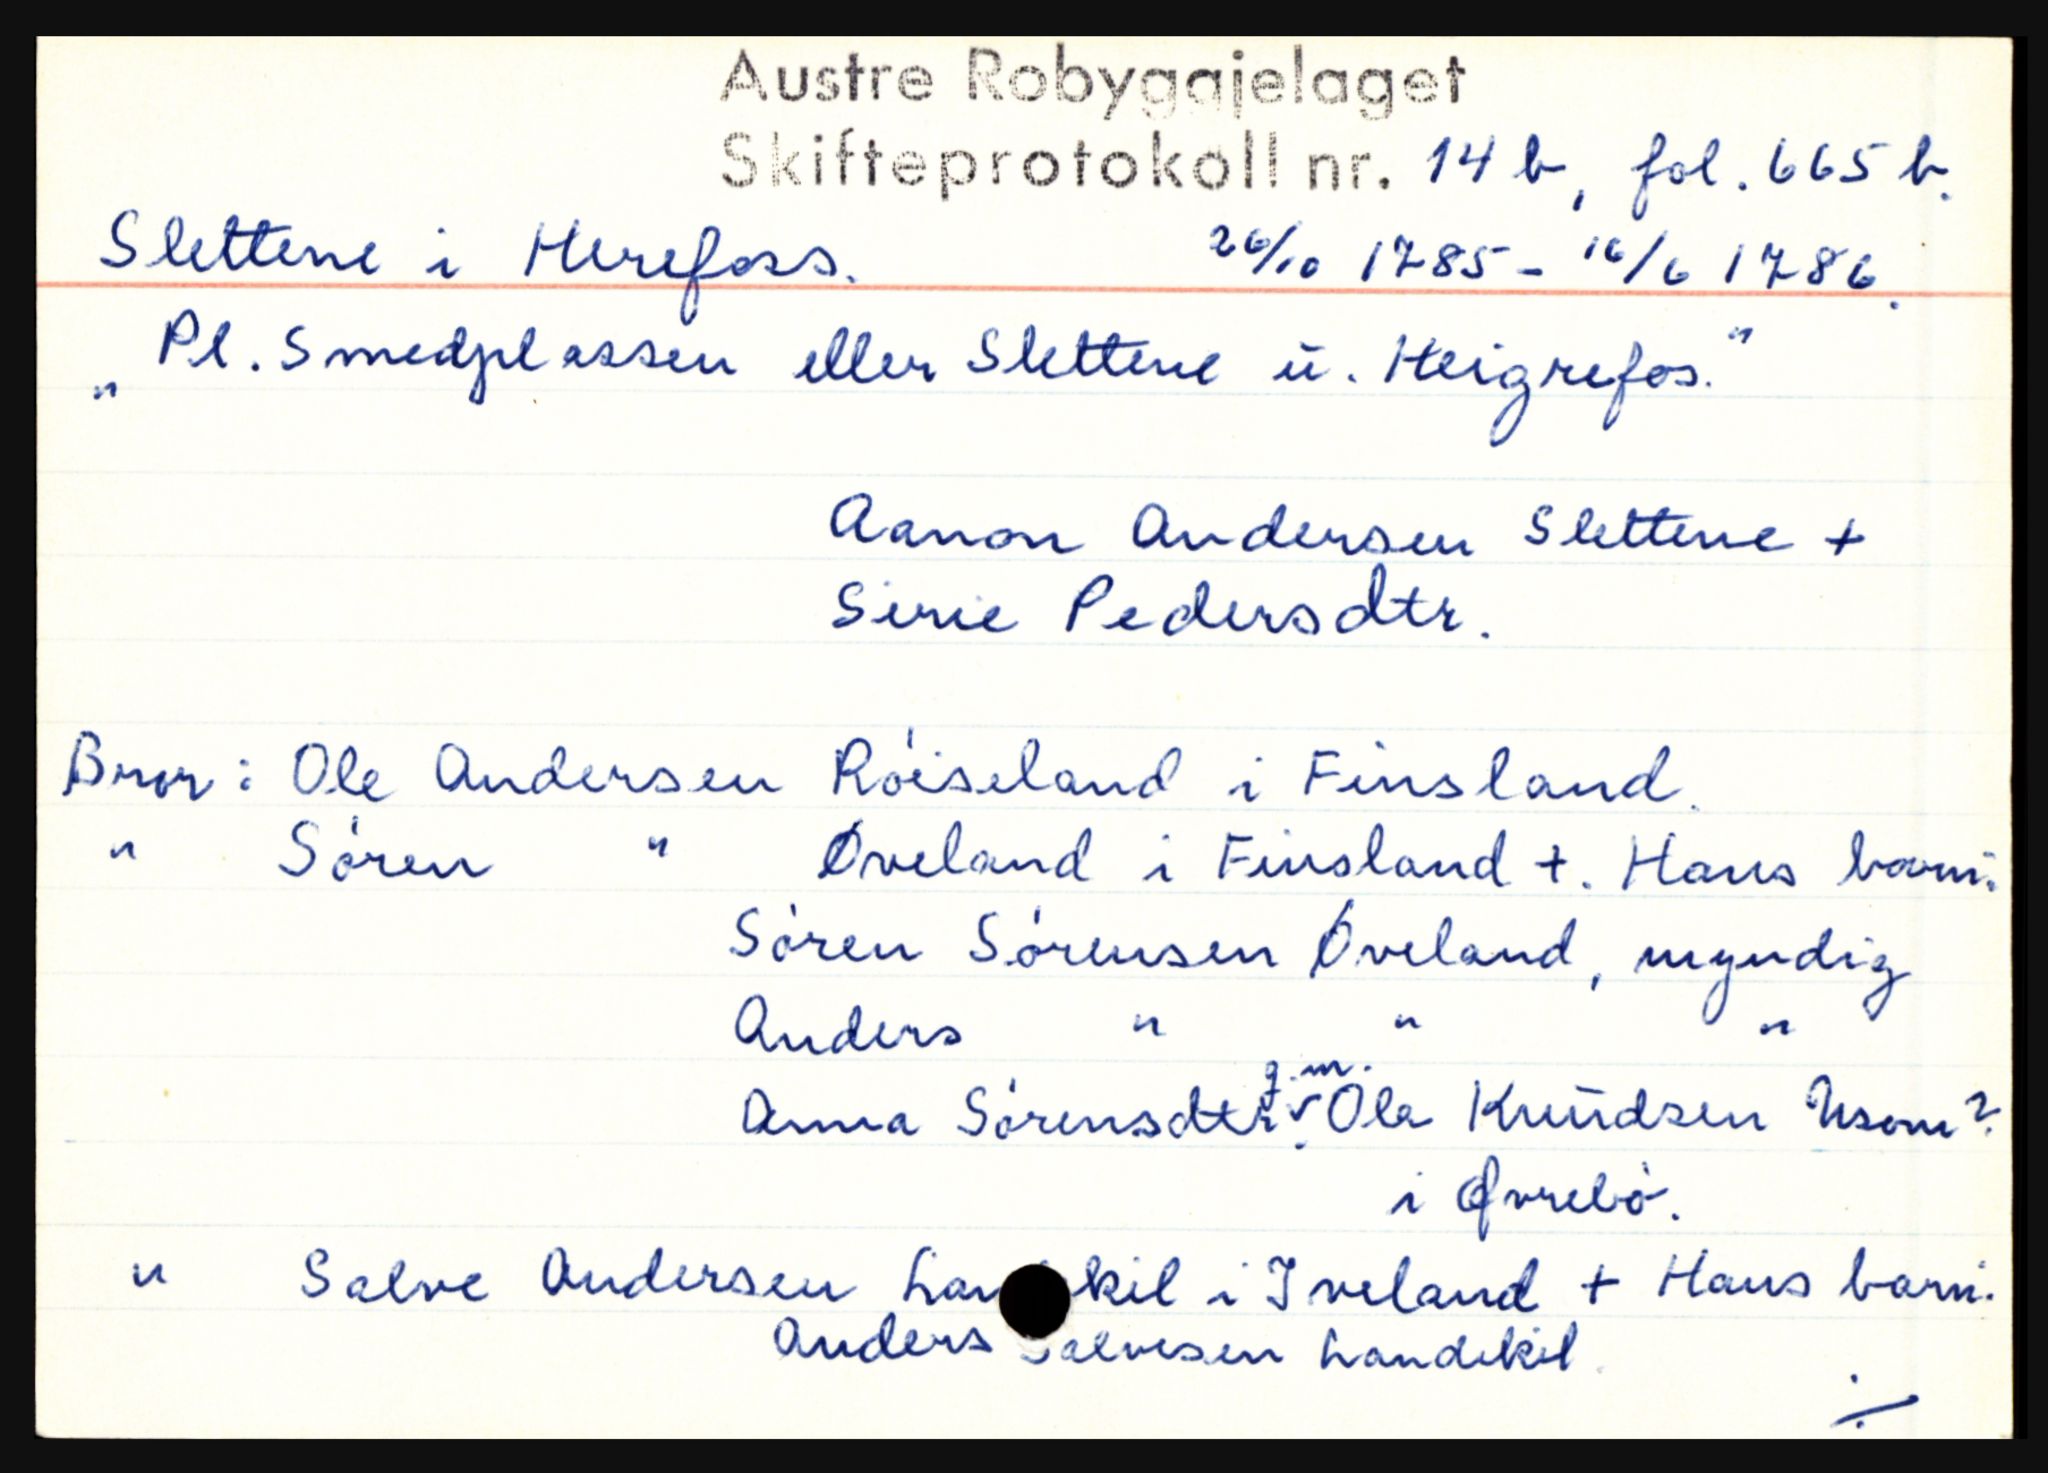 Austre Robyggjelaget
Skifteprotokoll nr. 14 b, fol. 665 b.
Slettene i Herefoss. 26/10 1785 - 16/6 1786.
„Pl. Smedplassen eller Slettene ū. Heigrefos."
Aanon Andersen Slettene +
Sirie Pedersdtr.
Bror: Ole Andersen Röiseland i Finsland.
" Sören " Øveland i Finsland +. Hans barn:
Sören Sörensen Øveland, myndig
Anders " " "
g.m.
Anna Sörensdtr. v Ole Knūdsen Usom?
i Øvrebö.
" Salve Andersen kil i Iveland + Hans barn:
Anders Salvesen Landekil.
./.